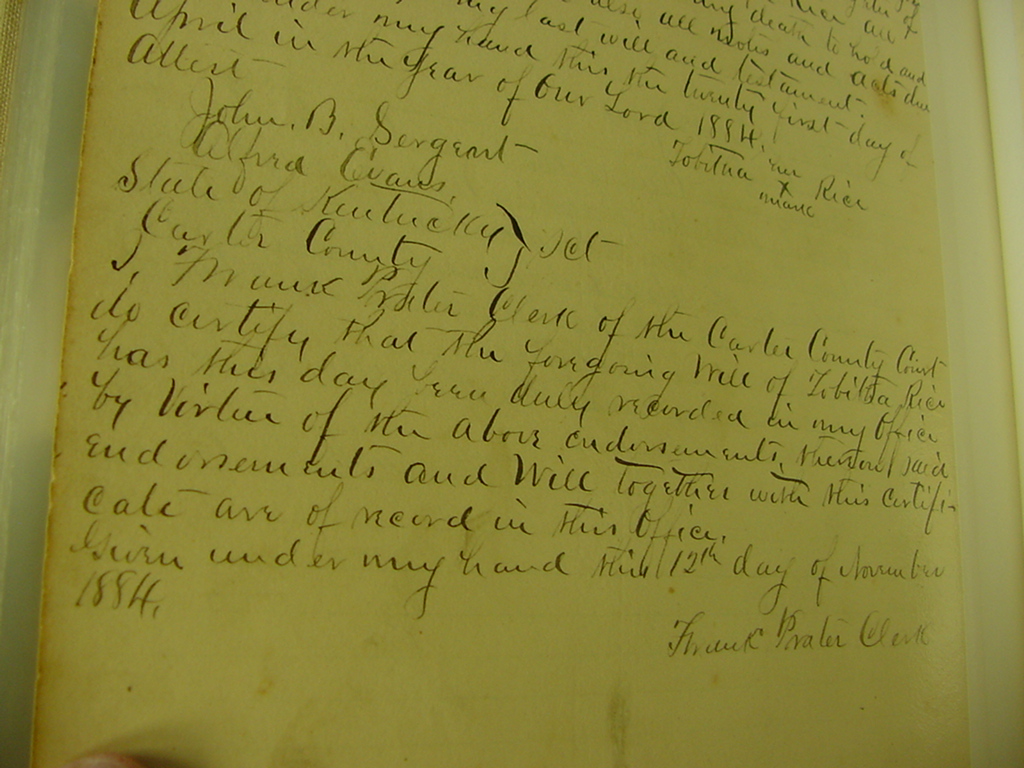 my death to hold and
also all notes and acts due
my last will and testament.
under my hand this the twenty first day of
April in the year of Our Lord 1884.
Attest
Tobitha her Rice
x
mark
John. B. Sergent
Alfred Evans.
State of Kentucky } sct
Carter County
I, Frank Prater Clerk of the Carter County Court
do certify that the foregoing Will of Tobitha Rice
has this day been duly recorded in my Office
by Virtue of the above endorsements, thereon said
endorsements and Will together with this certifi-
cate are of record in this Office.
Given under my hand this 12th day of November
1884.
Frank Prater Clerk